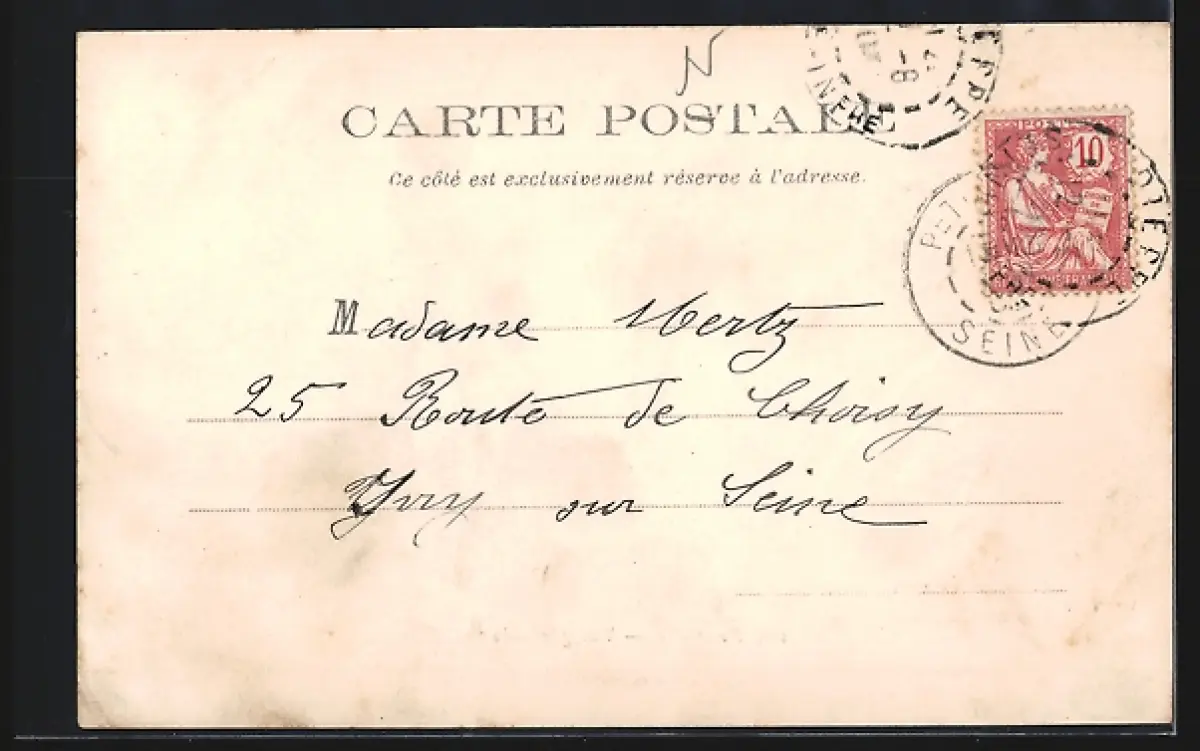 N
CARTE POSTALE
Ce côté est exclusivement réservé à l'adresse.
10
SEINE
Madame Mertz
25 Route de Choisy
Yvry sur Seine